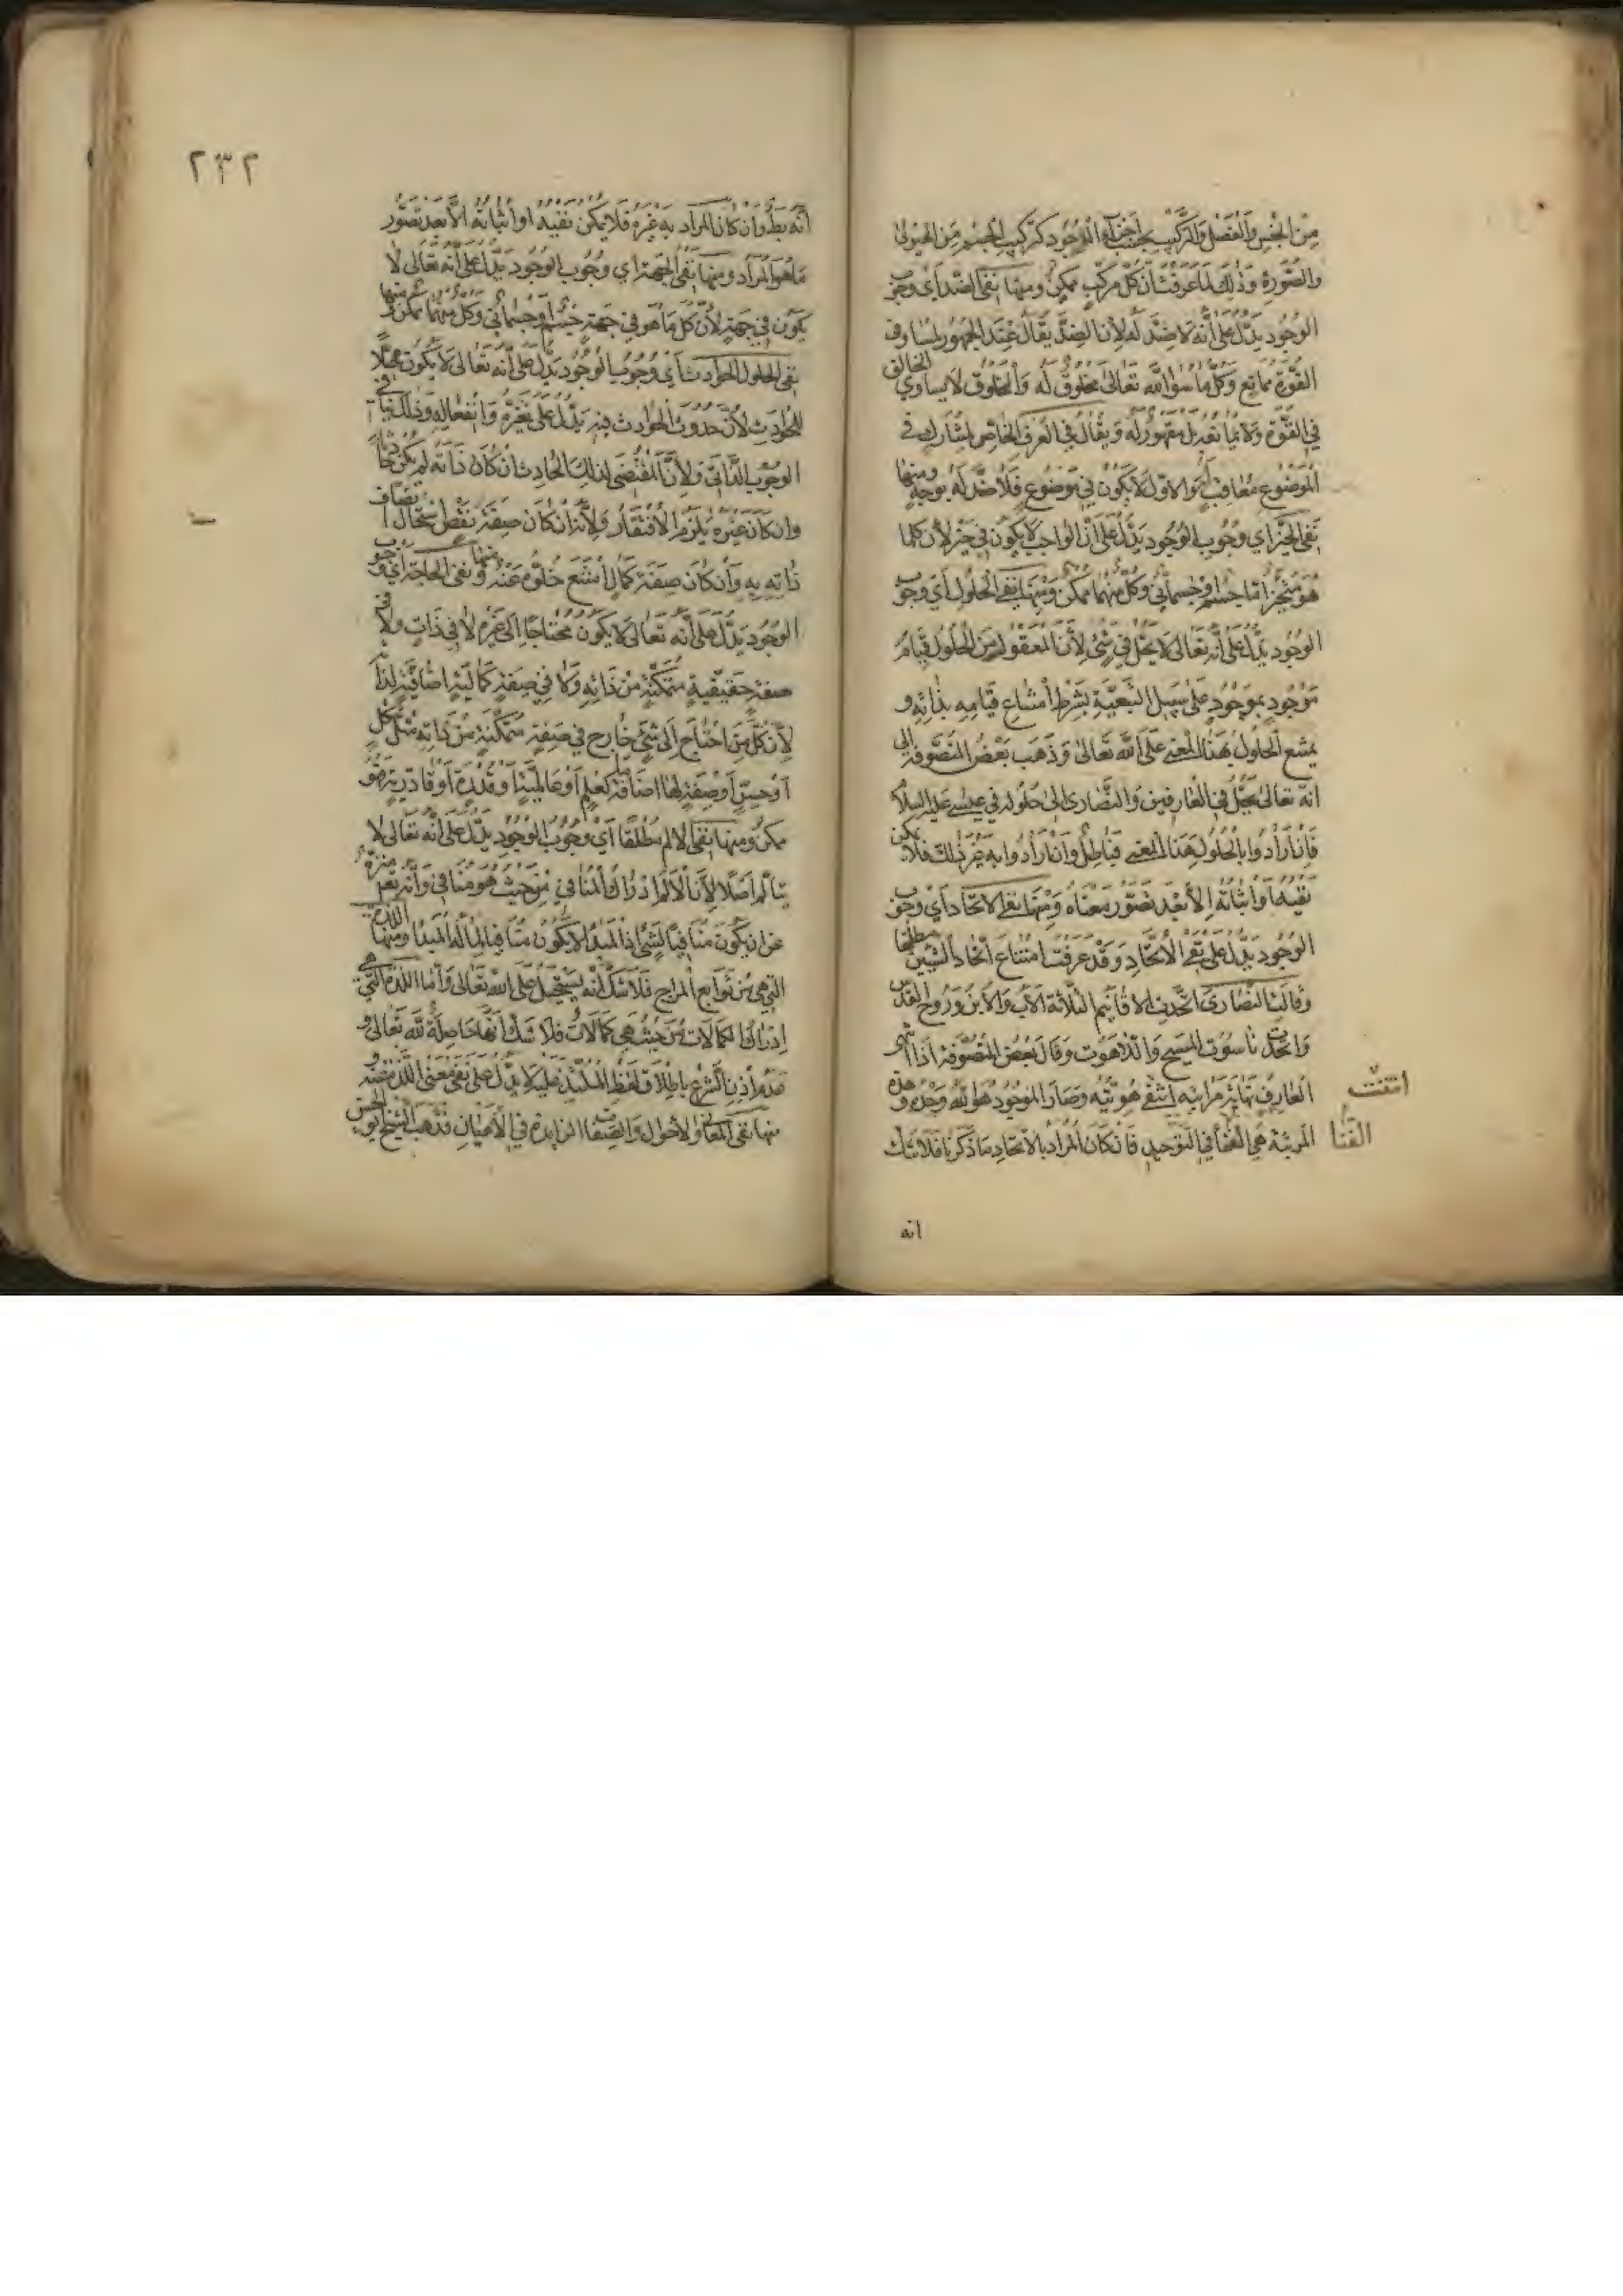 من الجنس والفصل والتركيب بحسب اجزاء الوجود كتركيب الجسم من الهيولى
والصورة وذلك لما عرفت ان كل مركب ممكن ومنها نفى الضد اى وجوب
الوجود يدل على انه لا ضد له لان الضد يقال عند الجمهور لمساو فى
القوة ممانع وكل ما سوا الله تعالى مخلوق له والمخلوق لا يساوي الخالق
في القوة ولا يمانعه بل مقهور له ويقال في العرف الخاص لمشارك في
الموضوع معاقب اذ والاول لا يكون في موضوع فلا ضد له بوجه ومنها
نفى الحيز اي وجوب الوجود يدل على ان الواجب لا يكون في حيز لان كلما
هو متحيز اما جسم او جسماني وكل منهما ممكن ومنها نفى الحلول اي وجوب
الوجود يدل على انه تعالى لا يحل في شئ لان المعقول من الحلول قيام
موجود بموجود على سبيل التبعية بشرط امتناع قيامه بذاته و
يمتنع الحلول بهذا المعنى على الله تعالى وذهب بعض المتصوفة الى
انه تعالى يحل في العارفين والنصارى الى حلوله في عيسى عليه السلام
فان ارادوا بالحلول هذا المعنى فباطل وان ارادوا به غير ذلك فلا يمكن
نفيه او اثباته الا بعد تصور معناه ومنها نفى الاتحاد اي وجوب
الوجود يدل على نفى الاتحاد وقد عرفت امتناع اتحاد الشيئين مطلقا
وقالت النصارى اتحدت الاقانيم الثلاثة الاب والابن وروح القدس
واتحد ناسوت المسيح واللاهوت وقال بعض المتصوفة اذا انتهى
العارف نهاية مراتبه انتفى هويته وصار الموجود هو الله وحده وهذه
المرتبة هي الفناء في التوحيد فان كان المراد بالاتحاد ما ذكرنا فلا شك
انتفت
الفنا
انه
٢٣٢
انه بط وان كان المراد به غيره فلا يمكن نفيه او اثباته الا بعد تصور
ما هو المراد ومنها نفى الجهة اي وجوب الوجود يدل على انه تعالى لا
يكون في جهة لان كل ما هو في جهة جسم او جسماني وكل منهما ممكن ومنها
نفى الحلول الحوادث اي وجوب الوجود يدل على انه تعالى لا يكون محلا
للحوادث لان حدوث الحوادث فيه يدل على تغيره وانفعاله وذلك ينافي
الوجوب الذاتي ولان المقتضى لذلك الحادث ان كان ذاته لم يكن حادثا
وان كان غيره يلزم الافتقار ولانه ان كان صفة نقص استحال اتصاف
ذاته به وان كان صفة كمال امتنع خلوه عنه ومنها نفى الحاجة اي وجوب
الوجود يدل على انه تعالى لا يكون محتاجا الى غيره لا في ذات ولا في
صفة حقيقية متمكنة من ذاته ولا في صفة كمالية اضافية لذاته
لان كل من احتاج الى شئ خارج في صفة متمكنة من ذاته مثل شكل
او حسن او صفة لها اضافة كعلم او عالمية او قدرة او قادرية فهو
ممكن ومنها نفى الالم مطلقا اي وجوب الوجود يدل على انه تعالى لا
يتألم اصلا لان الالم ادراك المنافي من حيث هو منافي وانه تعم منزه
عن ان يكون منافيا لشئ اذ المبدأ لا يكون منافيا لما له المبدأ ومنها اللذة
التي هي من توابع المزاج فلا شك انه يستحيل على الله تعالى واما اللذة التي هي
ادراك الكمالات من حيث هي كمالات فلا شك انها حاصلة لله تعالى و
عدم اذن الشرع باطلاق لفظ الملتذ عليه لا يدل على نفى معنى اللذة عنه و
منها نفى المعاني والاحوال والصفات الزايدة في الاعيان فذهب الشيخ ابو الحسن